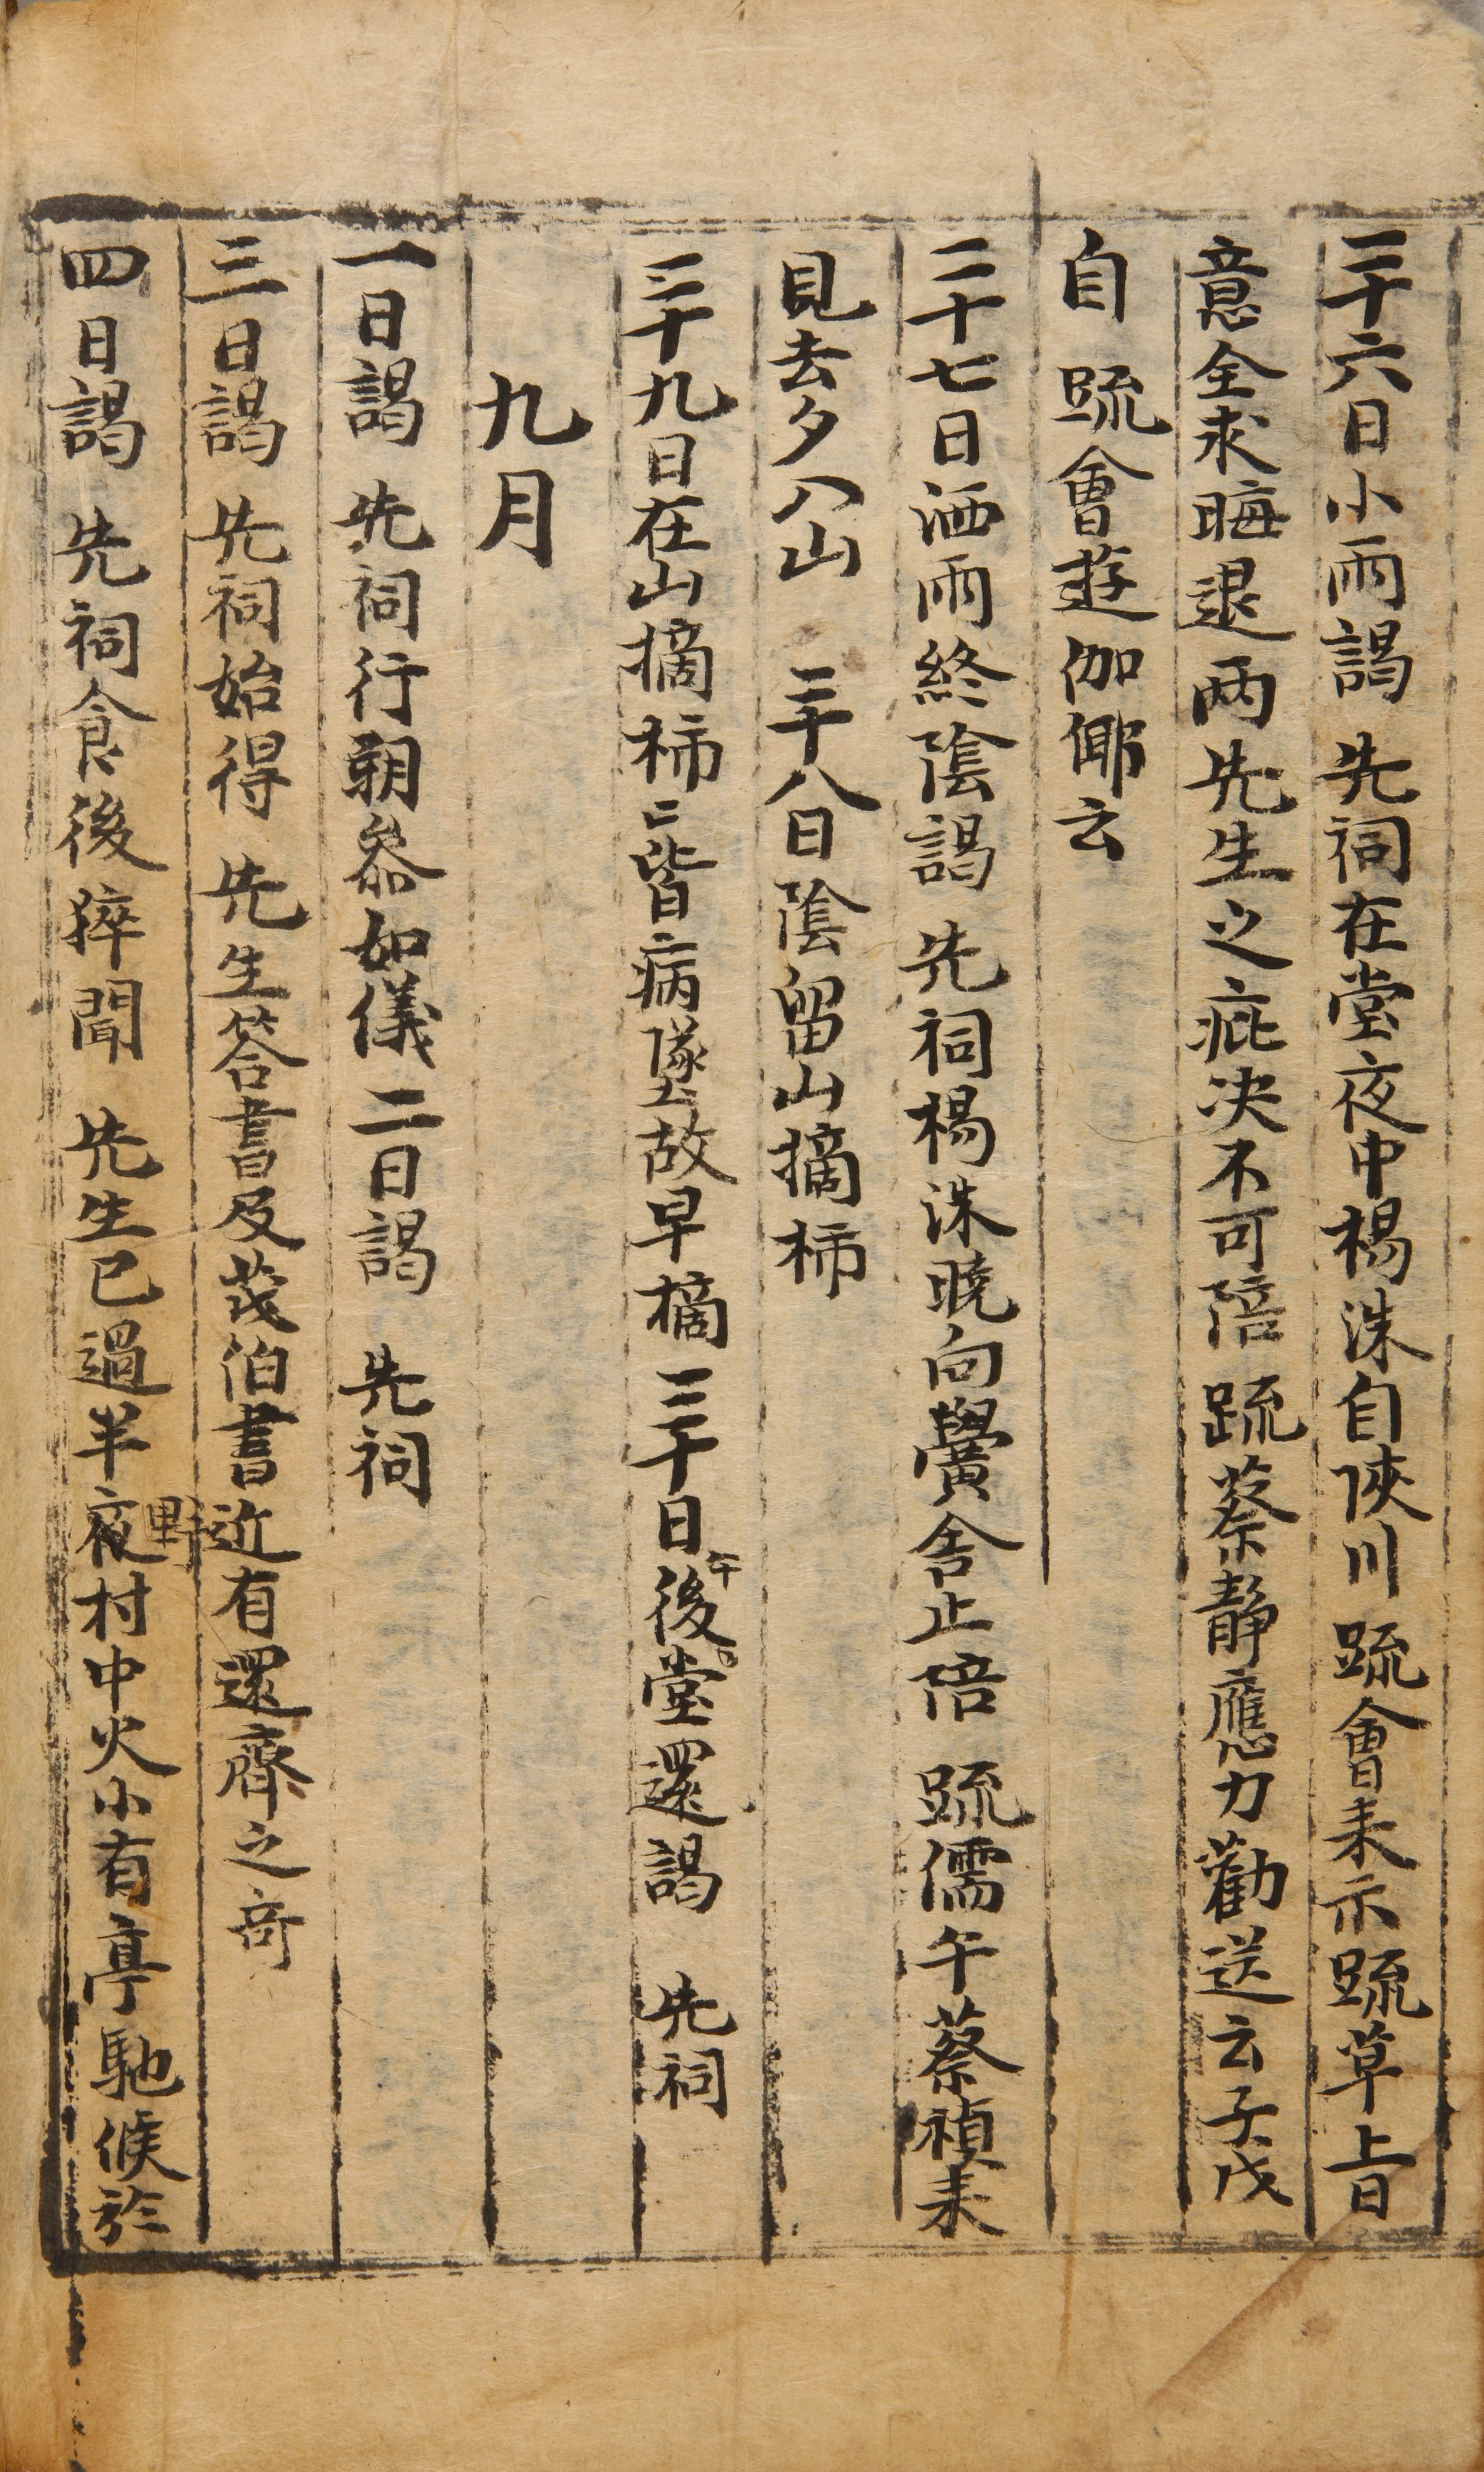 二十六日小雨謁 先祠在堂夜中楊洙自陜川 疏會来示疏草上旨
意全求晦退两先生之疵决不可陪 疏蔡靜應力勸送云子戊
自 疏會遊伽倻云
二十七日洒雨終陰謁 先祠楊洙曉向黌舍止陪 疏儒午蔡禎来
見去夕入山 二十八日陰留山摘柿
二十九日在山摘柿〻皆病墜故早摘 三十日午後堂還謁 先祠
九月
一日謁 先祠行朝叅如儀 二日謁 先祠
三日謁 先祠始得 先生答書及茂伯書近有還齊之奇
四日謁 先祠食後猝聞 先生已過半夜野村中火小有亭馳候於